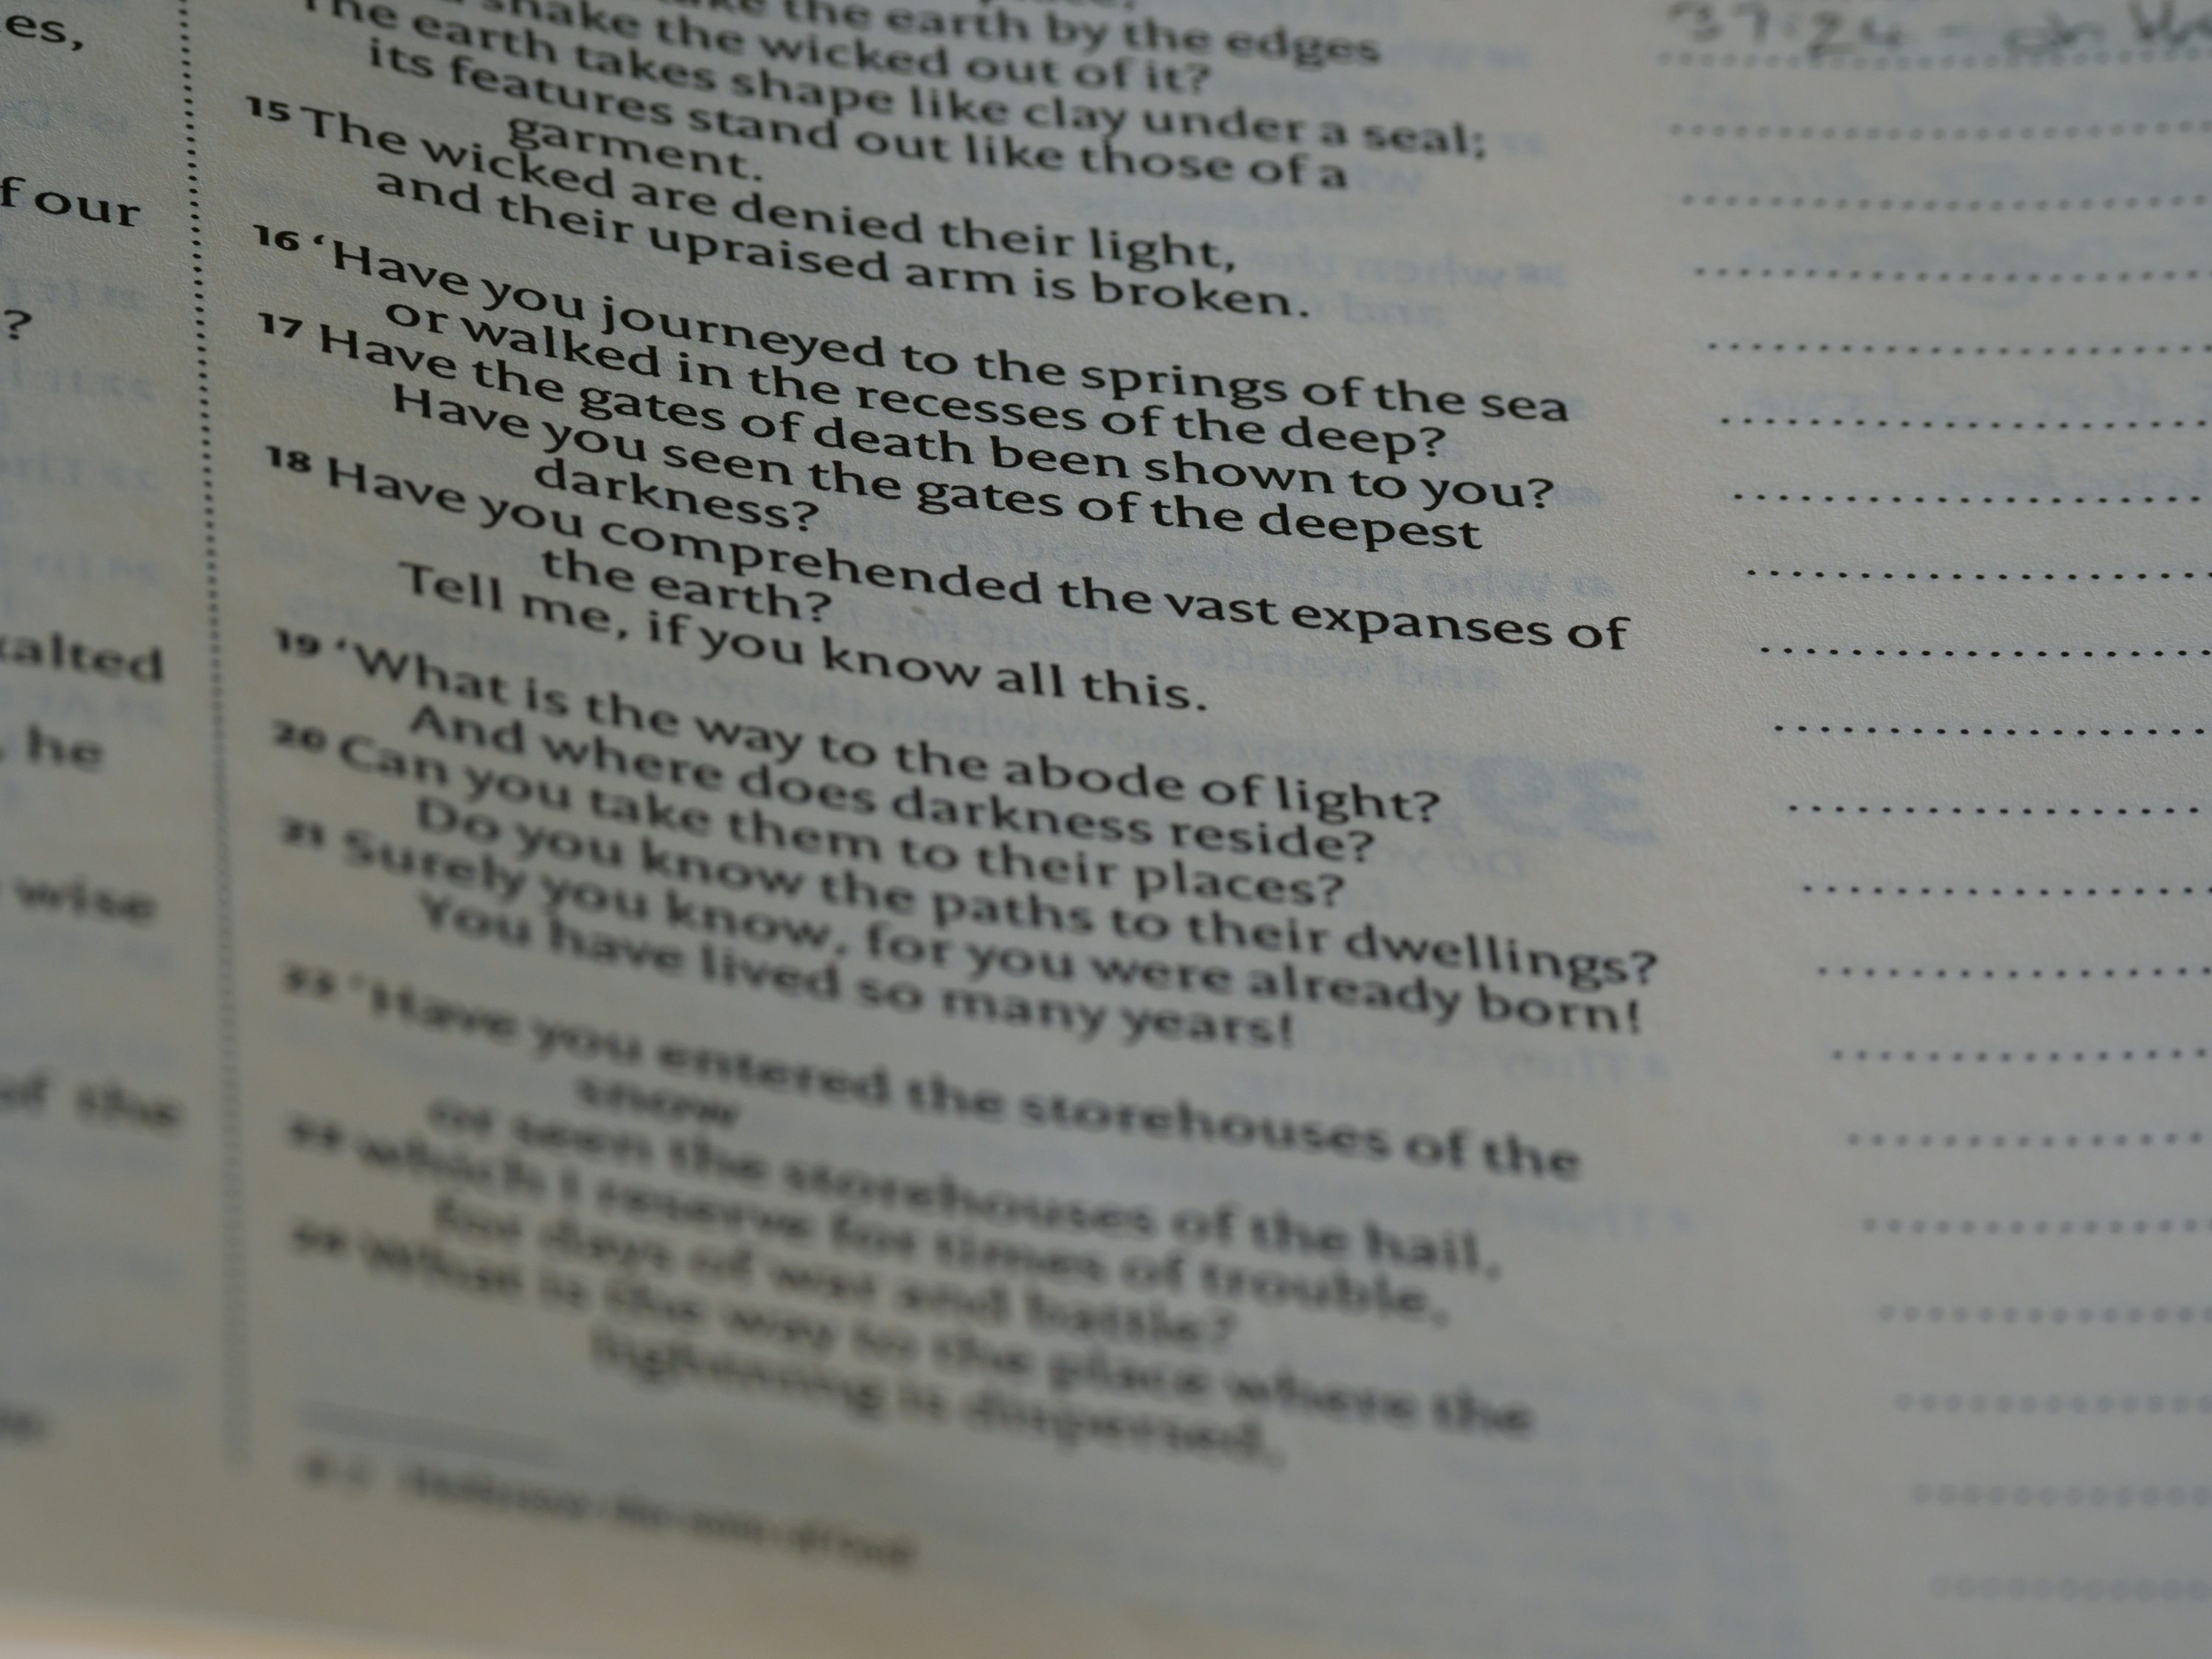 es,
f our
?
alted
, he
wise
of the
the earth by the edges
shake the wicked out of it?
The earth takes shape like clay under a seal;
its features stand out like those of a
garment.
15 The wicked are denied their light,
and their upraised arm is broken.
16 ‘Have you journeyed to the springs of the sea
or walked in the recesses of the deep?
17 Have the gates of death been shown to you?
Have you seen the gates of the deepest
darkness?
18 Have you comprehended the vast expanses of
the earth?
Tell me, if you know all this.
19 ‘What is the way to the abode of light?
And where does darkness reside?
20 Can you take them to their places?
Do you know the paths to their dwellings?
21 Surely you know, for you were already born!
You have lived so many years!
22 ‘Have you entered the storehouses of the
snow
or seen the storehouses of the hail,
23 which I reserve for times of trouble,
for days of war and battle?
24 What is the way to the place where the
lightning is dispersed,
37:24 -